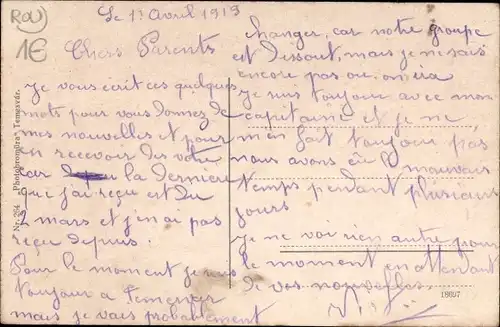 ROU
1€
Le 1r Avril 1919
Chers Parents
Je vous écrit ces quelques
mots pour vous donnez de
mes nouvelles et pour
en recevoir des votre
car la dernière
que j'ai reçu et du
2 mars et j'n ai pas
reçu depuis.
Pour le moment je suis
toujour a Temesvar
mais je vais probablement
changer, car notre groupe
et dissout, mais je ne sais
encore pas ou on ira
Je suis toujour avec mon
capitaine et je ne
men fait toujour pas
nous avons eu le mauvais
temps pendant plusieur
jours
Je ne voi rien autre pour
le moment en attendant
de vos nouvelles.
Nr. 264 Photobromüra Temesvár.
18897